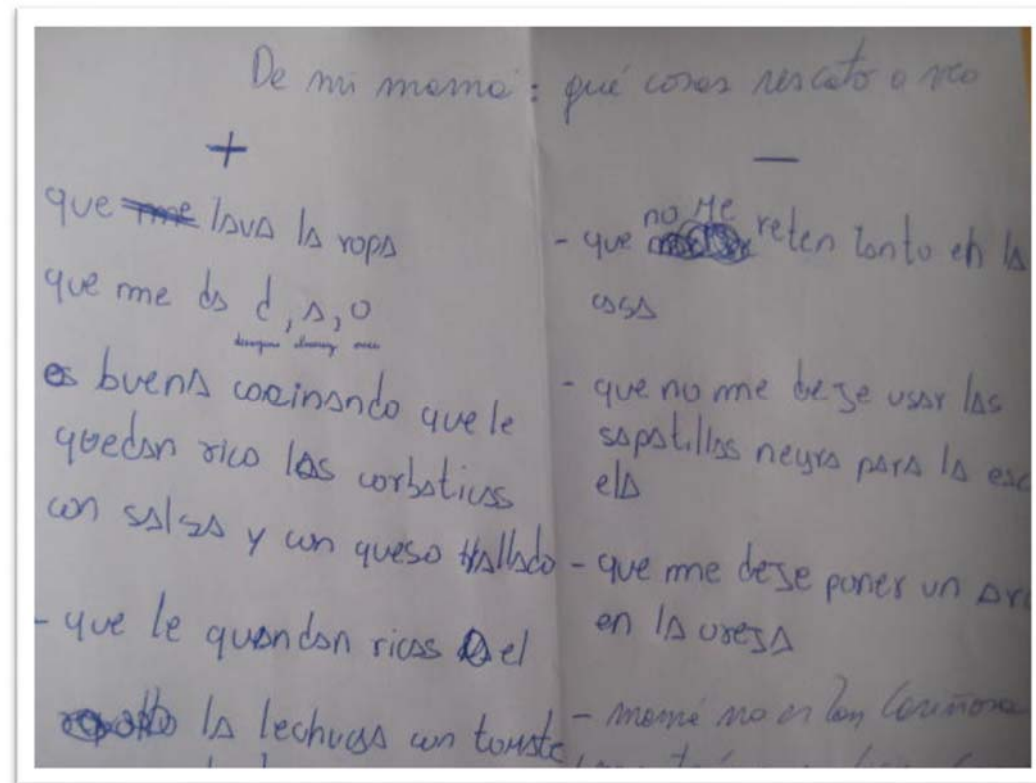 De mi mamá: qué cosas rescato o veo
+
que lava la ropa
que me da d, a, o
es buena cocinando que le
quedan rico las corbaticas
con salsa y con queso rallado
- que le quandan ricas el
la lechuga con tomate
—
- que no me reten tanto en la
casa
- que no me deje usar las
sapatillas negra para la esc
ela
- que me deje poner un ar
en la oreja
- mamá no es tan cariñosa